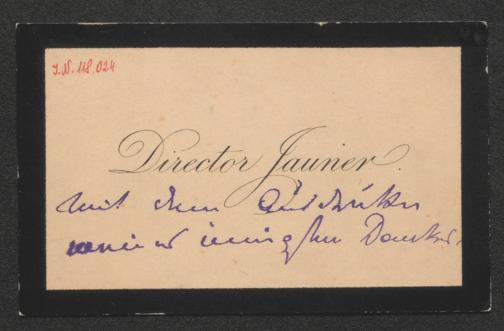 I.N. 118.024
Director Jauner.
mit dem Ausdrucke
meines innigsten Dankes.